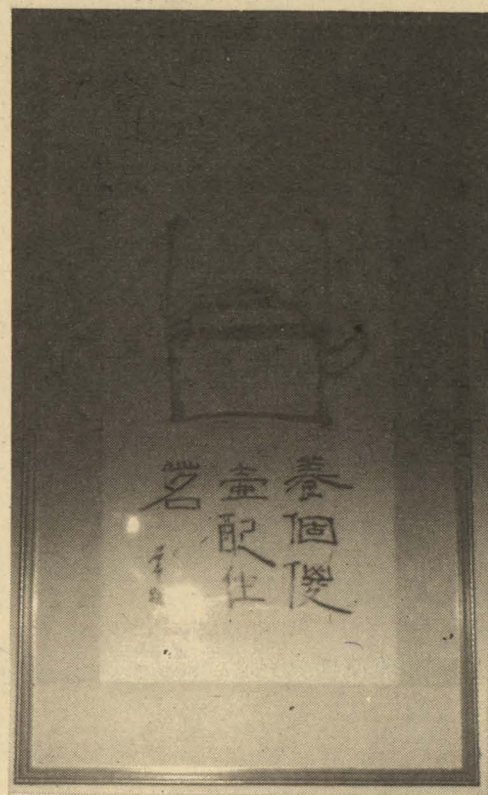 養個
壺配佳
茗